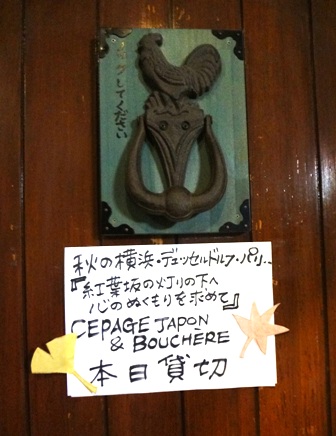 ノックしてください
秋の横浜・デュッセルドルフ・パリ…
『紅葉坂の灯りの下へ
心のぬくもりを求めて』
CEPAGE JAPON
& BOUCHERE
本日貸切